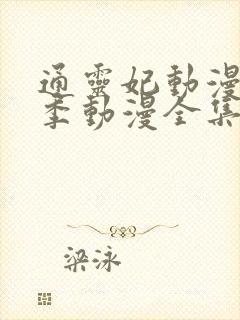 通靈妃動漫
季動漫全集
梁泳